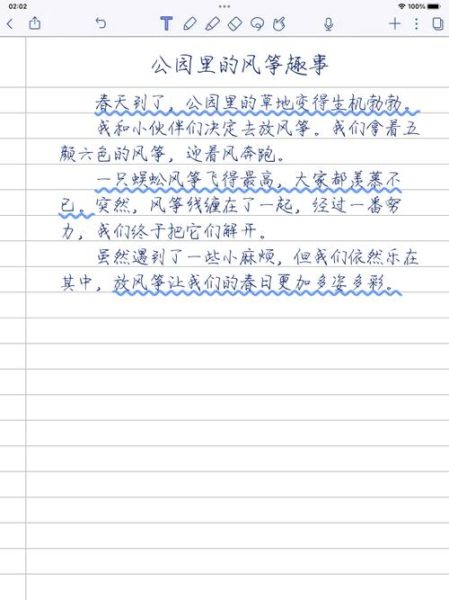 02:02
100%
公园里的风筝趣事
春天到了，公园里的草地变得生机勃勃。
我和小伙伴们决定去放风筝。我们拿着五
颜六色的风筝，迎着风奔跑。
一只蜈蚣风筝飞得最高，大家都羡慕不
已。突然，风筝线缠在了一起，经过一番努
力，我们终于把它们解开。
虽然遇到了一些小麻烦，但我们依然乐在
其中，放风筝让我们的春日更加多姿多彩。